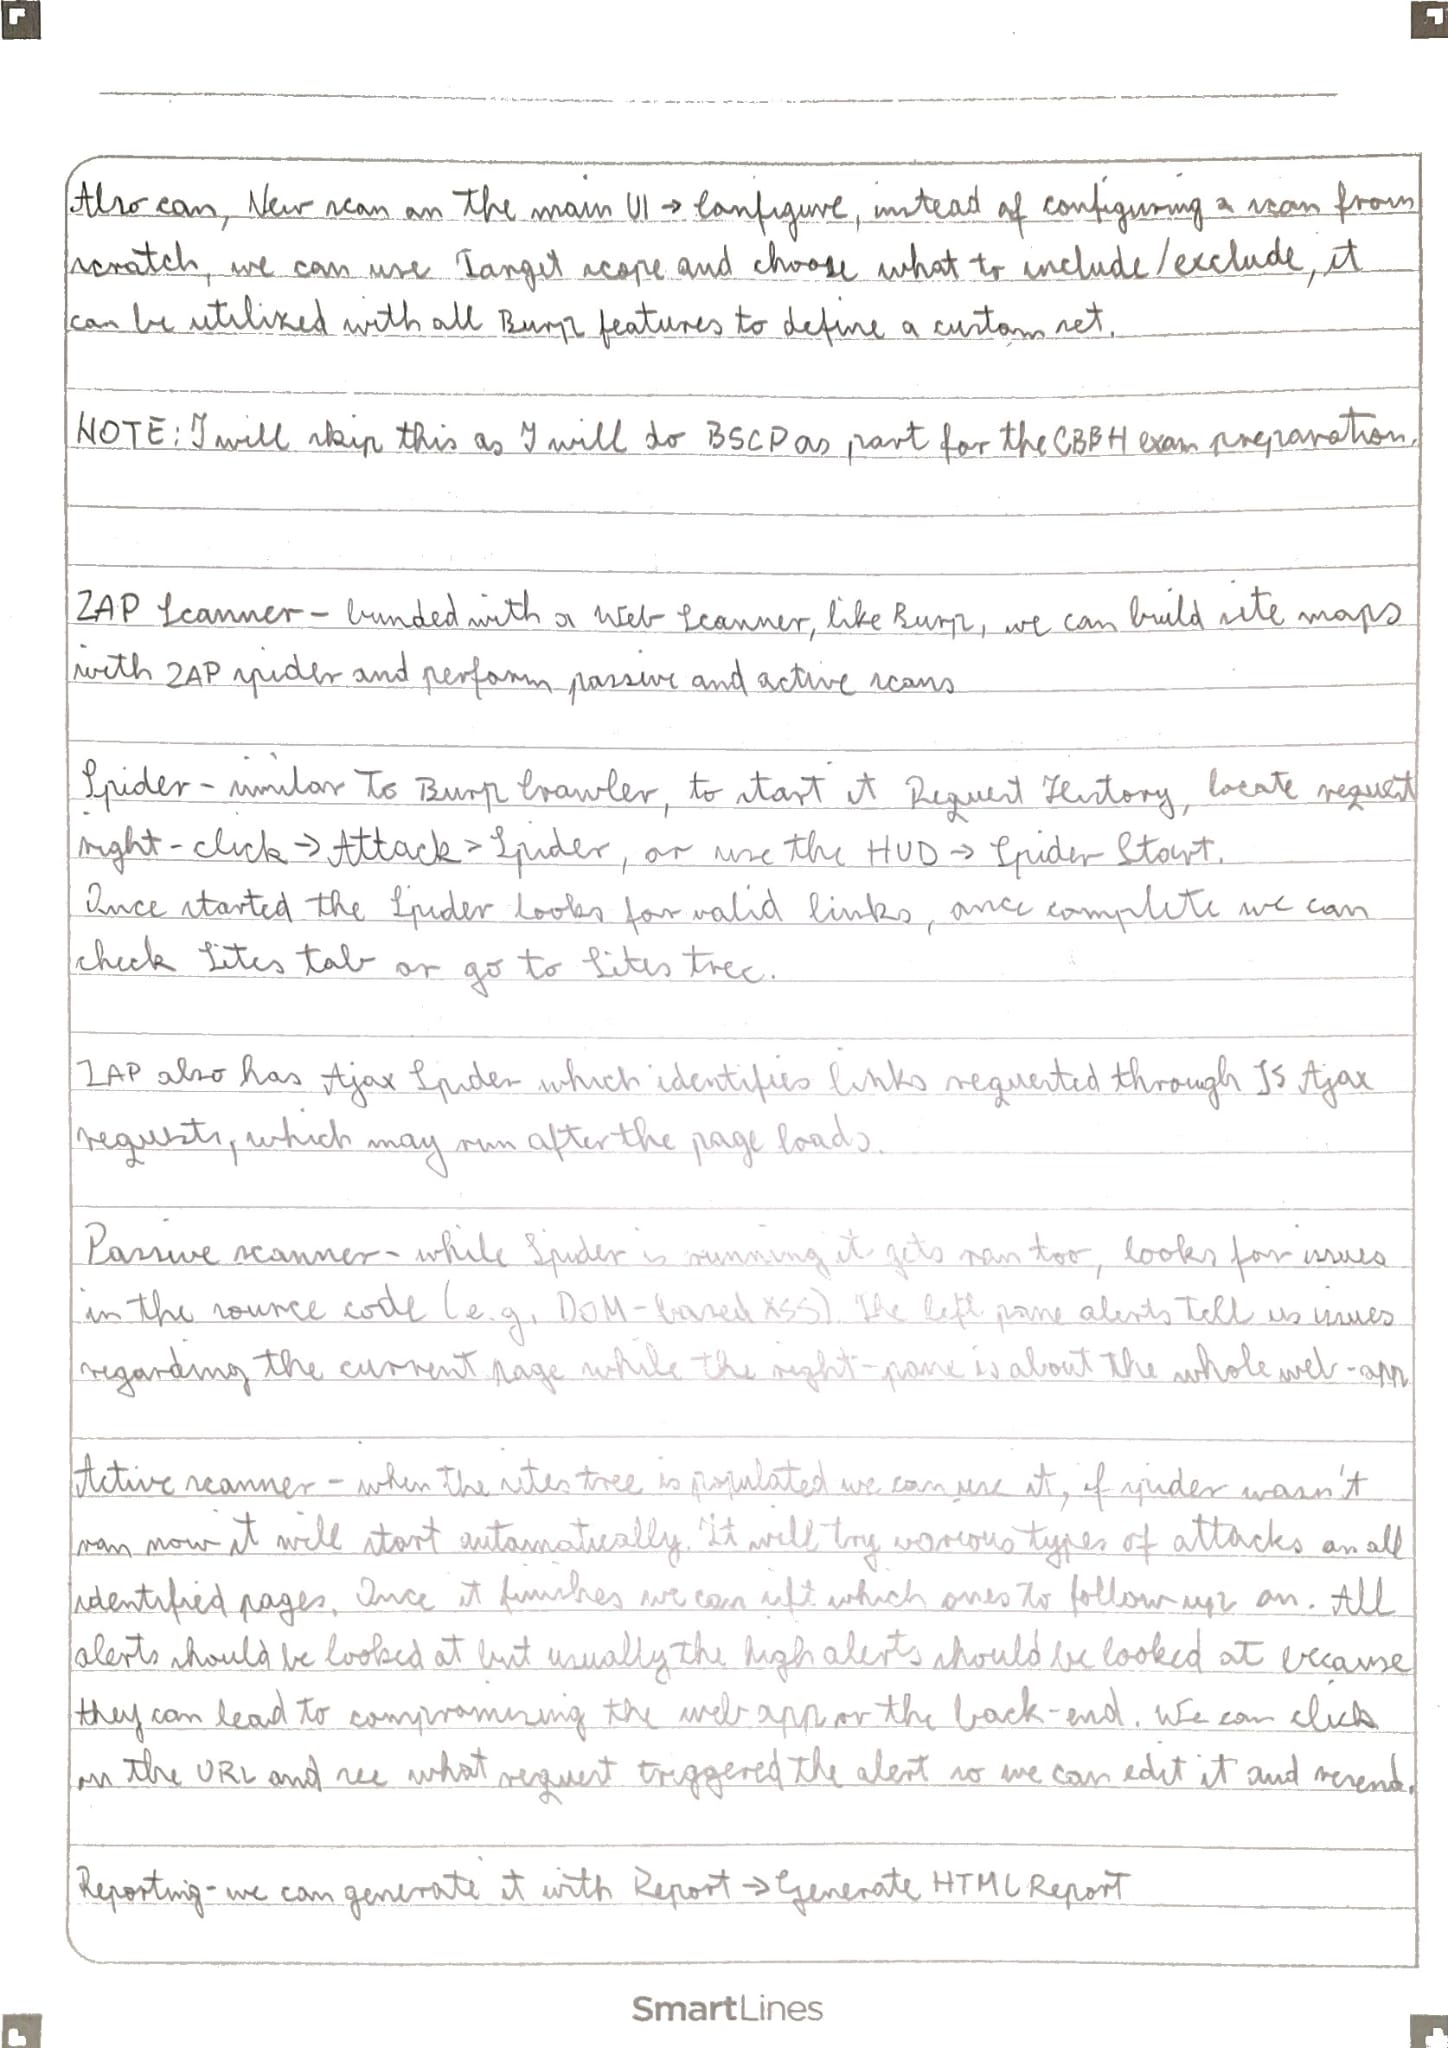 Also can, New scan on the main UI → Configure, instead of configuring a scan from
scratch, we can use Target scope and choose what to include/exclude, it
can be utilized with all Burp features to define a custom set.
NOTE: I will skip this as I will do BSCP as part for the CBBH exam preparation.
ZAP Scanner - bunded with a Web Scanner, like Burp, we can build site maps
with ZAP spider and perform passive and active scans
Spider - similar to Burp Crawler, to start it Request History, locate request
right-click → Attack > Spider, or use the HUD → Spider Start.
Once started the Spider looks for valid links, once complete we can
check Sites tab or go to Sites tree.
ZAP also has Ajax Spider which identifies links requested through JS Ajax
requests, which may run after the page loads.
Passive scanner - while Spider is running it gets ran too, looks for issues
in the source code (e.g. DOM-based XSS). The left pane alerts tell us issues
regarding the current page while the right-pane is about the whole web-app
Active scanner - when the sites tree is populated we can use it, if spider wasn't
ran now it will start automatically. It will try various types of attacks on all
identified pages. Once it finishes we can sift which ones to follow up on. All
alerts should be looked at but usually the high alerts should be looked at because
they can lead to compromising the web app or the back-end. We can click
on the URL and see what request triggered the alert so we can edit it and resend.
Reporting - we can generate it with Report → Generate HTML Report
SmartLines